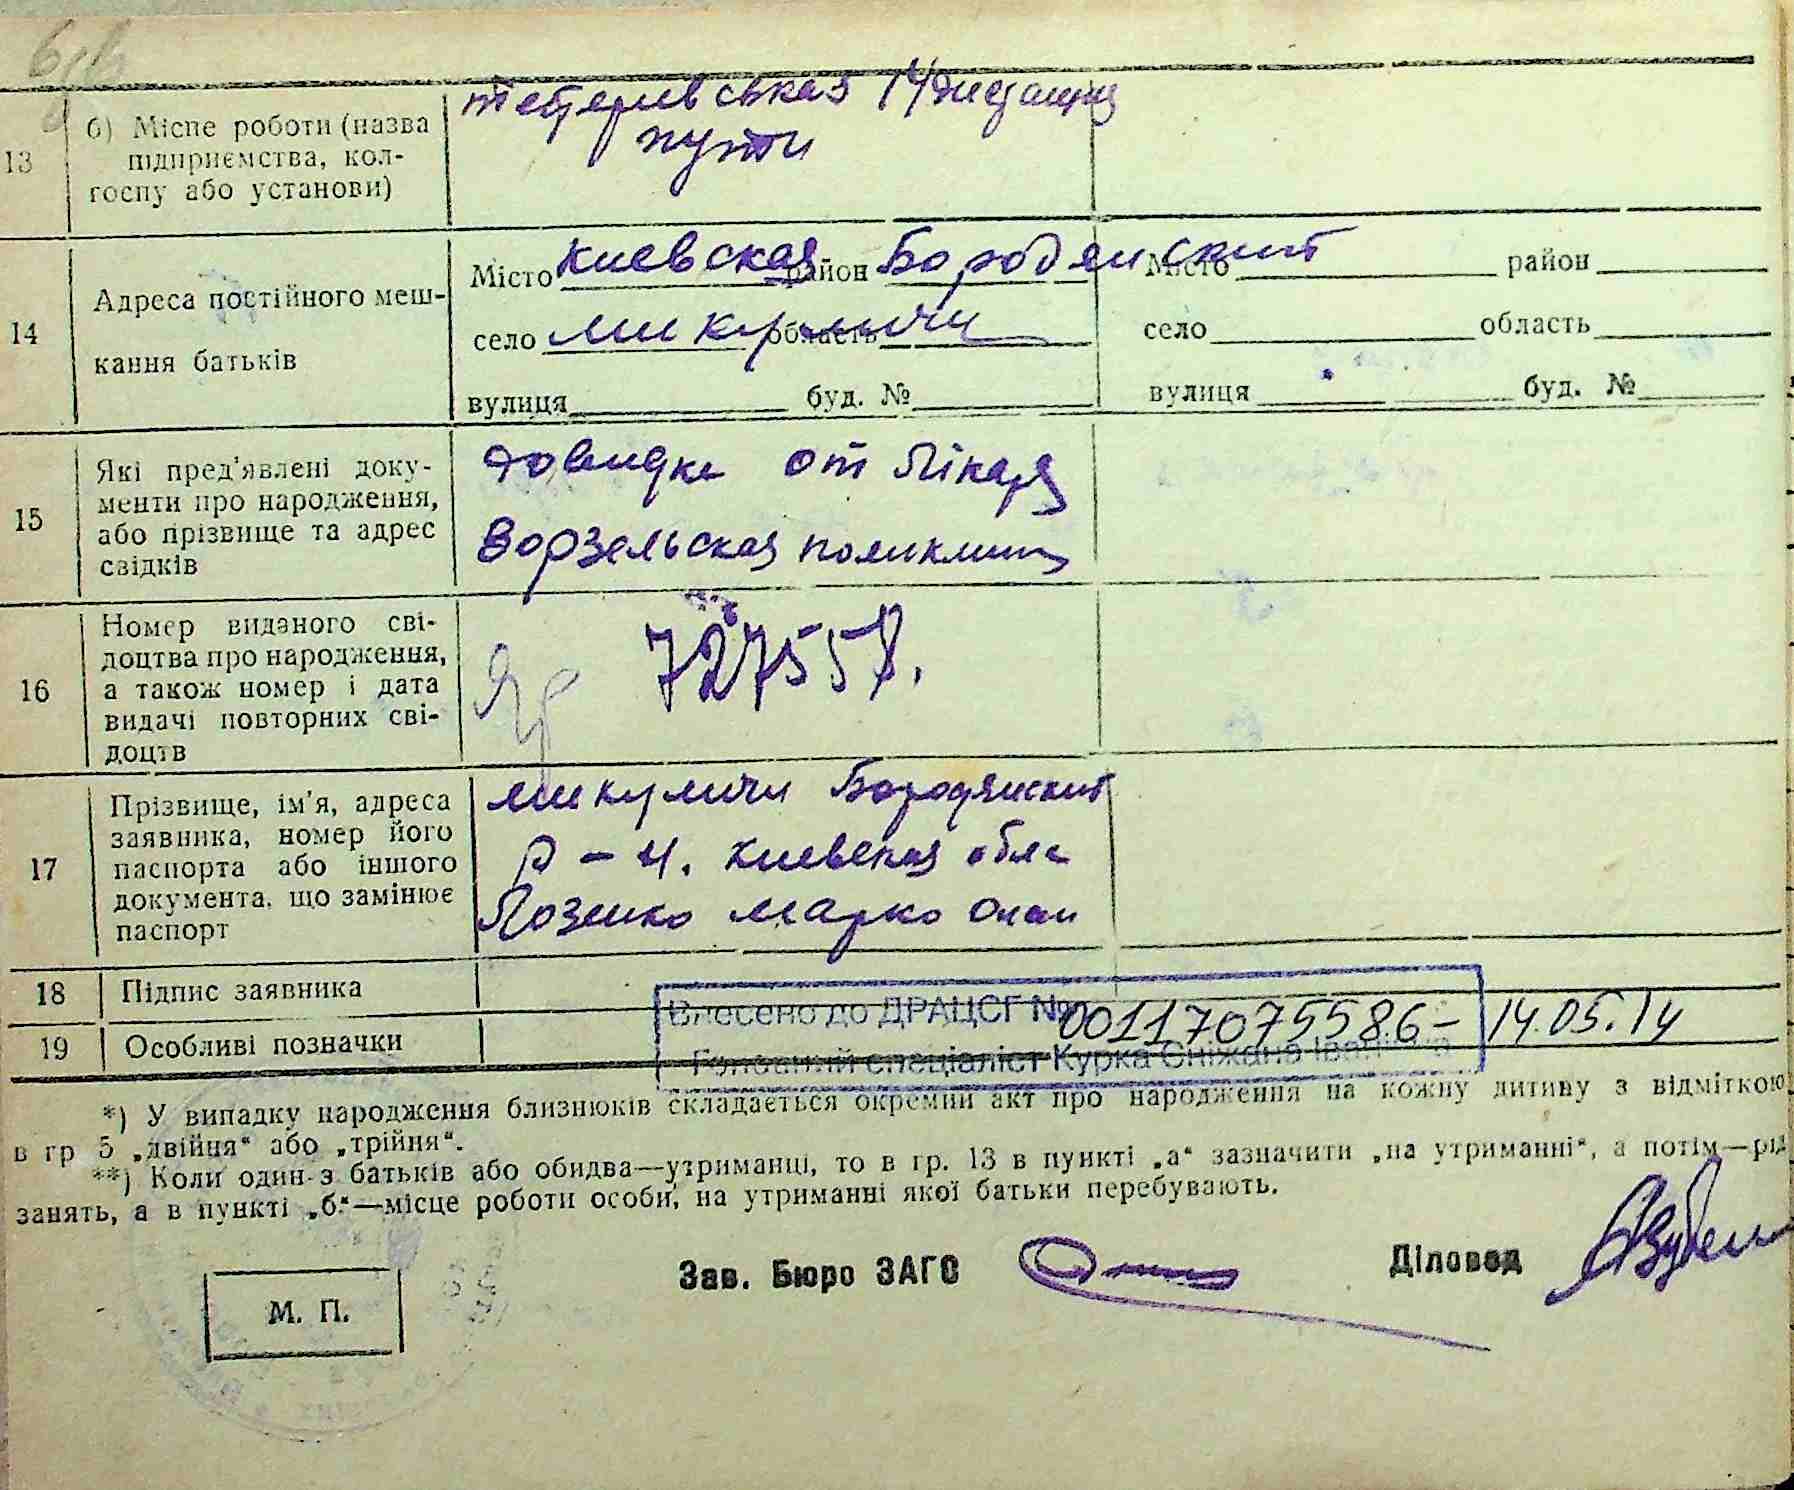 13 б) Місце роботи (назва підприємства, кол-
госпу або установи)
тетеривська 14 дистанция
пути
14 Адреса постійного меш-
кання батьків
Місто Киевская район Бородянский Місто район
село Микуличи область село область
вулиця буд. № вулиця буд. №
15 Які пред'явлені доку-
менти про народження,
або прізвище та адрес
свідків
довидка от лікаря
Ворзельская поликлин
16 Номер виданого сві-
доцтва про народження,
а також номер і дата
видачі повторних сві-
доцтв
727558.
17 Прізвище, ім'я, адреса
заявника, номер його
паспорта або іншого
документа, що замінює
паспорт
Микуличи Бородянский
Р-н. Киевская обла
Лозенко Марко
18 Підпис заявника
19 Особливі позначки
Внесено до ДРАЦСГ № 00117075586 – 14.05.14
Головний спеціаліст Курка Сніжана Іванівна
*) У випадку народження близнюків складається окремий акт про народження на кожну дитину з відміткою
в гр 5 „двійня“ або „трійня“.
**) Коли один з батьків або обидва—утриманці, то в гр. 13 в пункті „а“ зазначити „на утриманні“, а потім—рід
занять, а в пункті „б“—місце роботи особи, на утриманні якої батьки перебувають.
Зав. Бюро ЗАГС Діловод
М. П.